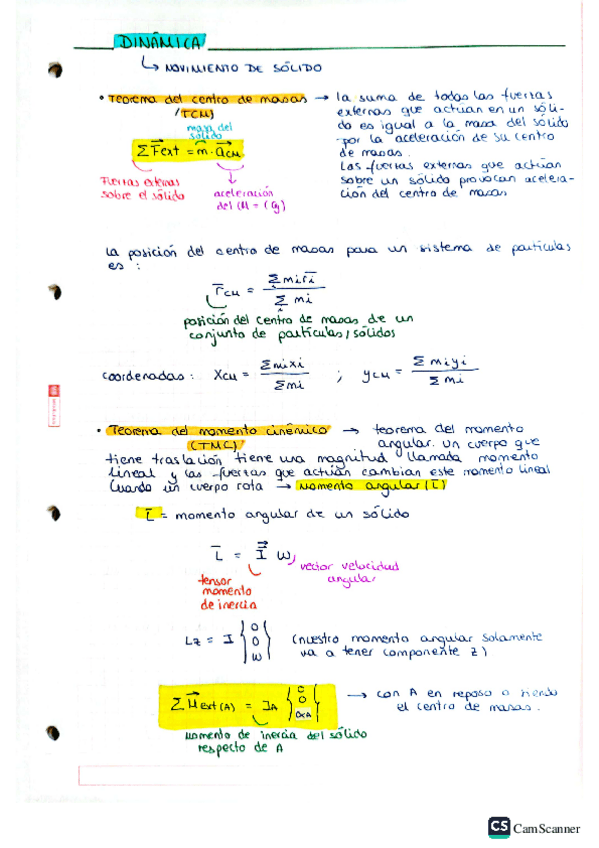 DINÁMICA
↳ MOVIMIENTO DE SÓLIDO
• Teorema del centro de masas → la suma de todas las fuerzas
(TCM)
externas que actúan en un sóli-
do es igual a la masa del sólido
por la aceleración de su centro
de masas.
Las fuerzas externas que actúan
sobre un sólido provocan acelera-
ción del centro de masas
masa del
sólido
ΣF⃗ext = m · a⃗CM
Fuerzas externas
sobre el sólido
aceleración
del CM = (G)
la posición del centro de masas para un sistema de partículas
es :
r̅CM = Σ mi r̅i / Σ mi
i
i
posición del centro de masas de un
conjunto de partículas/sólidos
coordenadas : XCM = Σmixi / Σmi ; yCM = Σ miyi / Σ mi
• Teorema del momento cinético → teorema del momento
(TMC)
angular. Un cuerpo que
tiene traslación tiene una magnitud llamada momento
lineal y las fuerzas que actúan cambian este momento lineal
Cuando un cuerpo rota → Momento angular (L̅)
L̅ = momento angular de un sólido
L̅ = I ω
vector velocidad
angular
tensor
momento
de inercia
Lz = I { 0 0 ω } (nuestro momento angular solamente
va a tener componente z)
ΣM⃗ext(A) = IA { 0 0 α } → con A en reposo o siendo
el centro de masas.
Momento de inercia del sólido
respecto de A
CS CamScanner